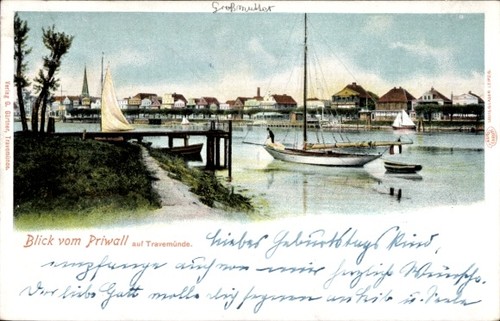 Großmutter
Verlag G. Gärtner, Travemünde.
Blick vom Priwall auf Travemünde.
Liebes Geburtstags Kind,
empfange auch von mir herzliche Wünsche.
Der liebe Gott wolle dich segnen an Leib u. Seele